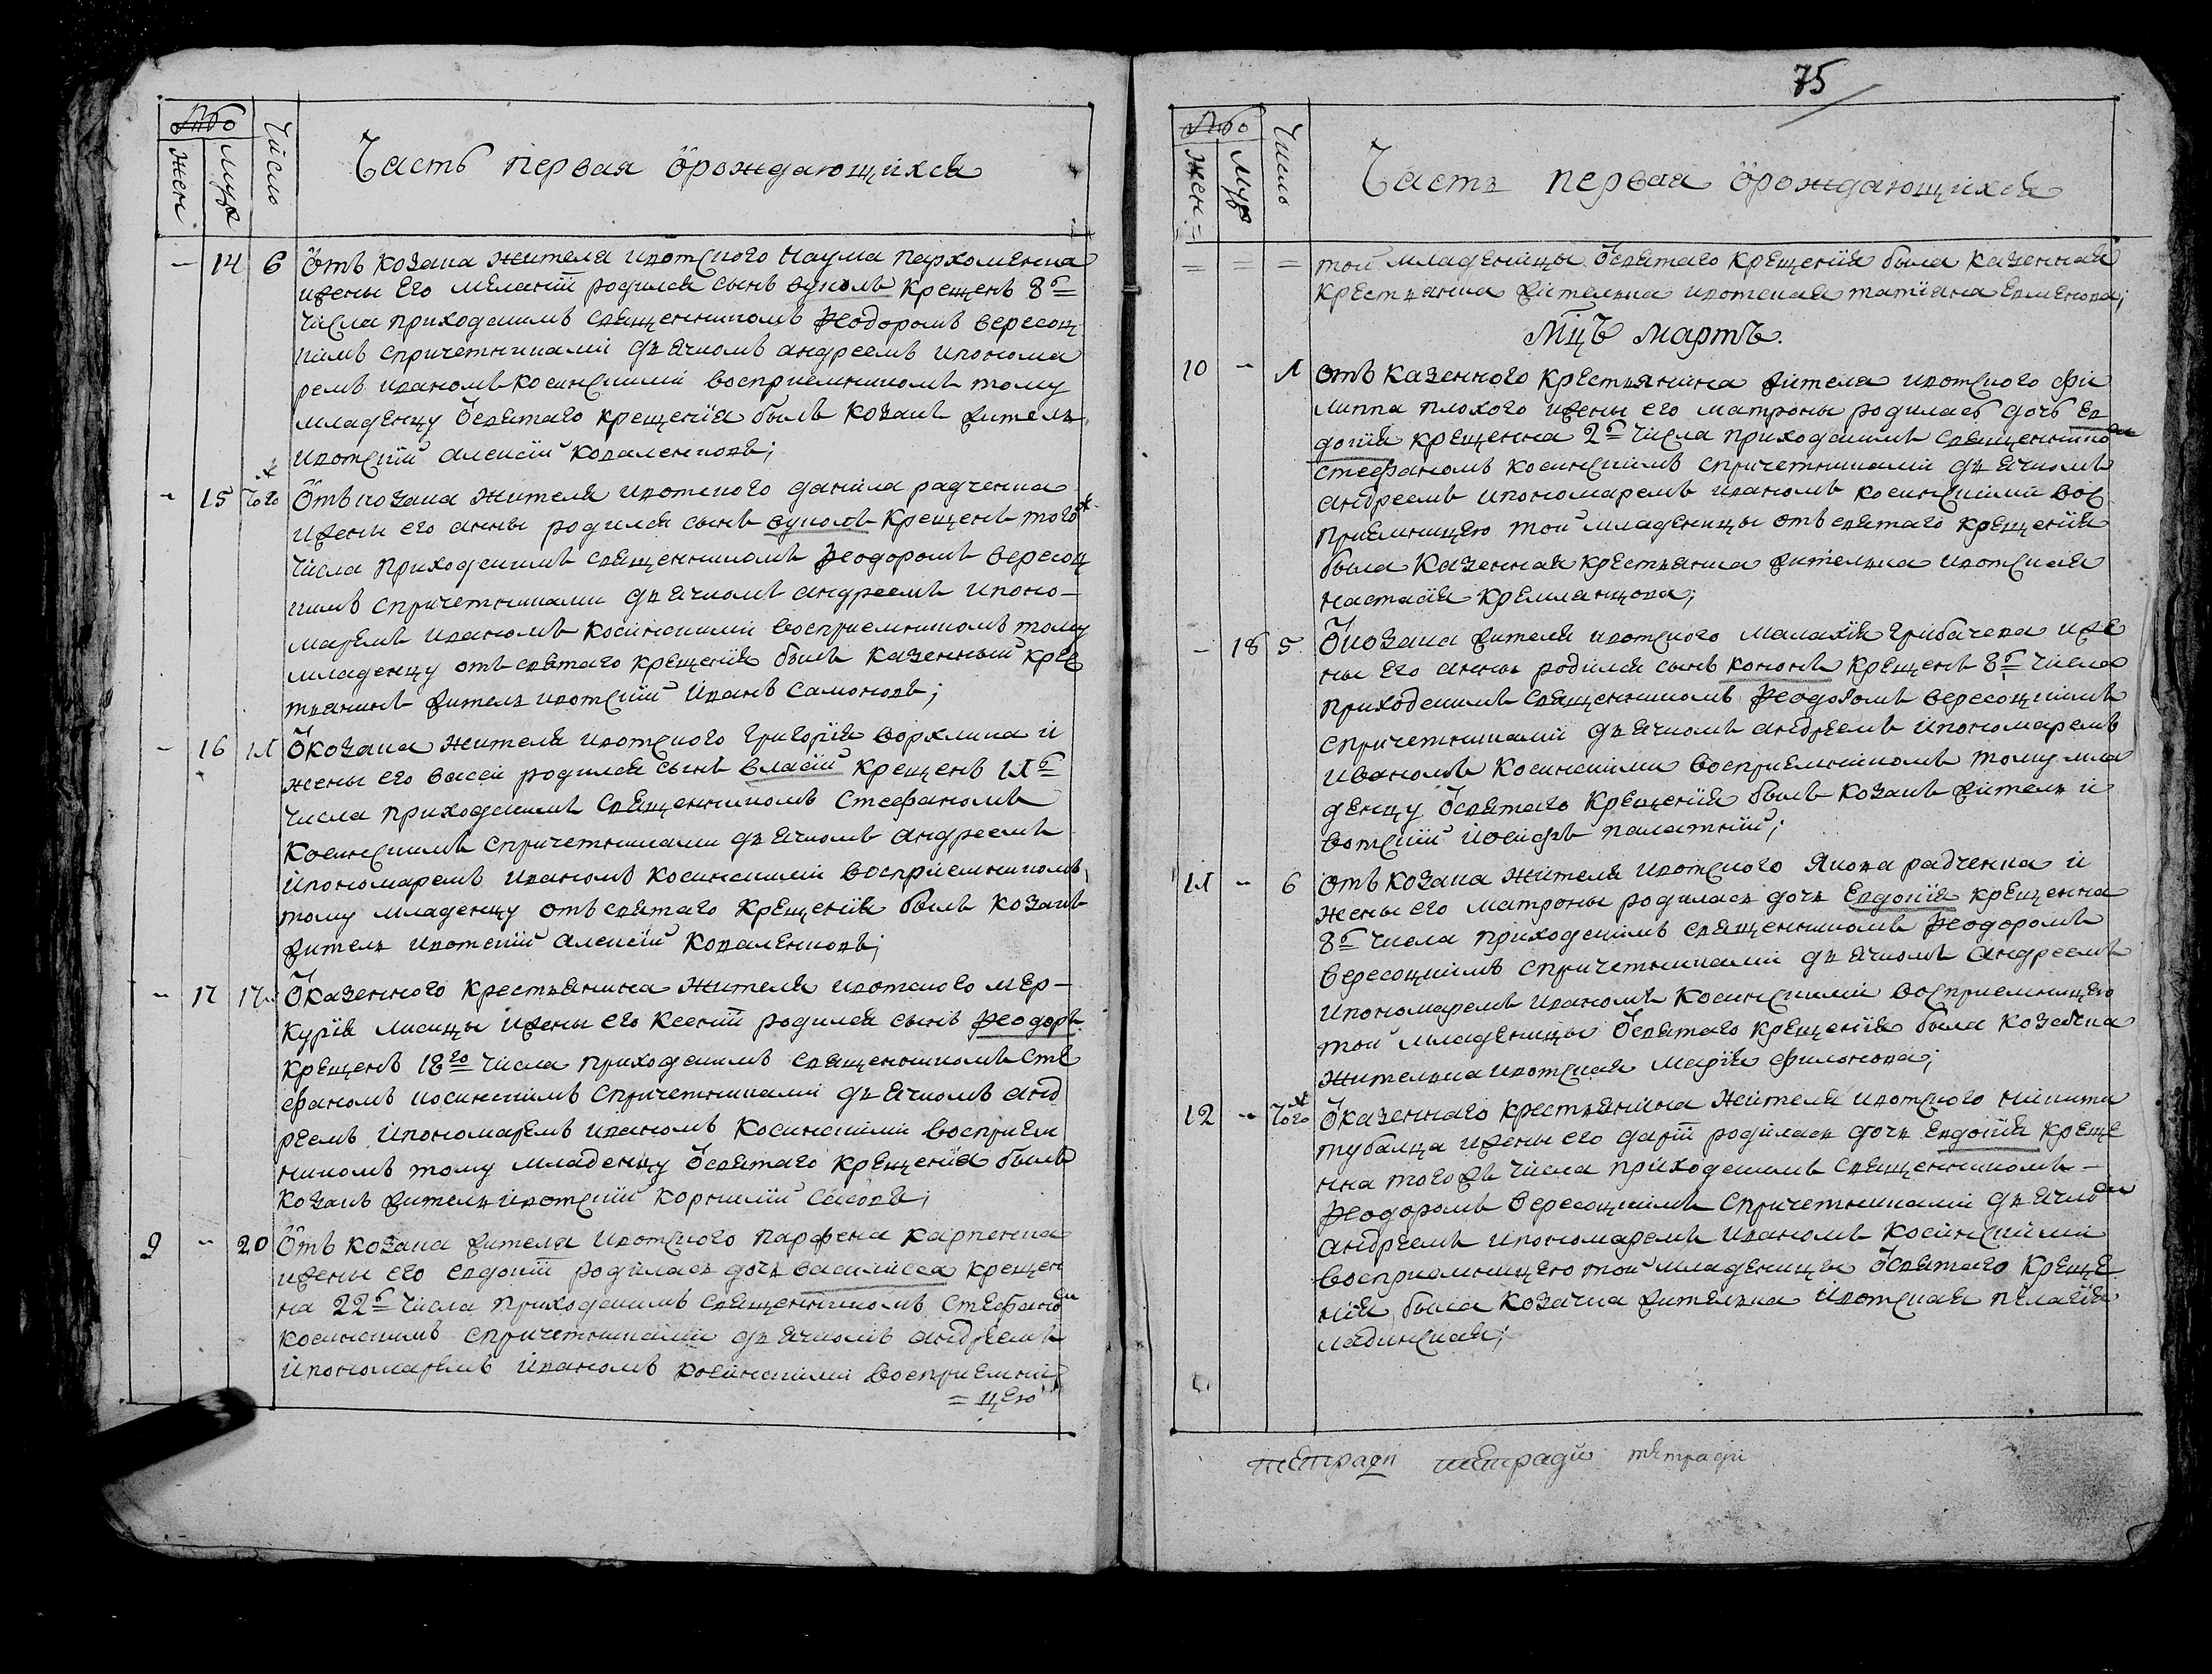 Число
Жен
Муж
Часть первая ѿрождающихся
- 14 6 Ѿтъ козака жителя ивотского Наума Пархоменка
ижены его мелании родился сынъ вуколъ крещенъ 8го
числа приходскимъ священникомъ Феодоромъ вересоц
кимъ спричетниками дьячкомъ андреемъ ипонома
ремъ иваномъ косинскими восприемникомъ тому
младенцу ѿсвятаго крещенїя былъ козакъ житель
ивотскїй алексїй коваленковъ;
- 15 того ж Ѿтъ козака жителя ивотского данила радченка
ижены его анны родился сынъ вуколъ крещенъ того ж
числа приходскимъ священникомъ Феодоромъ вересоц
кимъ спричетниками дьячкомъ андреемъ ипоно-
маремъ иваномъ косинскими восприемникомъ тому
младенцу отъ святаго крещенїя былъ казенный крес
тьянинъ житель ивотскїй Иванъ Самоновъ;
- 16 11 Ѿкозака жителя ивотского григорїя ворхлика и
жены его васси родился сынъ власїй крещенъ 11го
числа приходскимъ священникомъ Стефаномъ
косинскимъ спричетниками дьячкомъ андреемъ
ипономаремъ иваномъ косинскими восприемникомъ
тому младенцу отъ святаго крещенїя былъ козакъ
житель ивотскїй алексїй коваленковъ;
- 17 17 Ѿказенного крестьянина жителя ивотского мер-
курїя лисицы ижены его ксенїи родился сынъ Феодоръ
крещенъ 18го числа приходскимъ священникомъ Сте
фаномъ косинскимъ спричетниками дьячкомъ анд
реемъ ипономаремъ иваномъ косинскими восприем
никомъ тому младенцу ѿсвятаго крещенїя былъ
козакъ житель ивотскїй корнилїй Сасовъ;
9 - 20 Ѿтъ козака жителя ивотского парфена карпенка
ижены его евдокїи родилась дочь василисса крещен
на 22го числа приходскимъ священникомъ Стефаном
косинскимъ спричетниками дьячкомъ андреемъ
ипономаремъ иваномъ косинскими восприемни
= цею
75
Число
Жен
Муж
Часть первая ѿрождающихся
= = = той младеницы ѿсвятаго крещенїя была казенная
крестьянка жителька ивотская татїана Ерменкова;
Мцъ мартъ.
10 - 1 отъ казенного крестьянина жителя ивотского фи
липпа плохого ижены его матроны родилась дочь ев
докїя крещенна 2го числа приходскимъ священником
стефаномъ косинскимъ спричетниками дьячкомъ
андреемъ ипономаремъ иваномъ косинскими вос
приемницею той младеницы отъ святаго крещенїя
была казенная крестьянка жителька ивотская
настасїя кремлянцова;
- 18 5 Ѿкозака жителя ивотского малахїя грибачева иже
ны его анны родился сынъ кононъ крещенъ 8го числа
приходскимъ священникомъ Феодоромъ вересоцкимъ
спричетниками дьячкомъ андреемъ ипономаремъ
иваномъ косинскими восприемникомъ тому мла
денцу ѿсвятаго крещенїя былъ козакъ житель и
вотскїй иосифъ палатнїй;
11 - 6 отъ козака жителя ивотского якова радченка и
жены его матроны родилась дочь Евдокїя крещенна
8го числа приходскимъ священникомъ Феодоромъ
вересоцкимъ спричетниками дьячкомъ андреемъ
ипономаремъ иваномъ косинскими восприемницею
той младеницы ѿсвятаго крещенїя была козачка
жителька ивотская марїя филонова;
12 - того ж Ѿказеннаго крестьянина жителя ивотского никиты
тубалца ижены его дарїи родилась дочь Евдокїя креще
нна того жъ числа приходскимъ священникомъ -
Феодоромъ вересоцкимъ спричетниками дьячком
андреемъ ипономаремъ иваномъ косинскими
восприемницею той младеницы ѿсвятаго креще
нїя была козачка жителька ивотская пелагїя
ладинская;
тетради тетради тетради